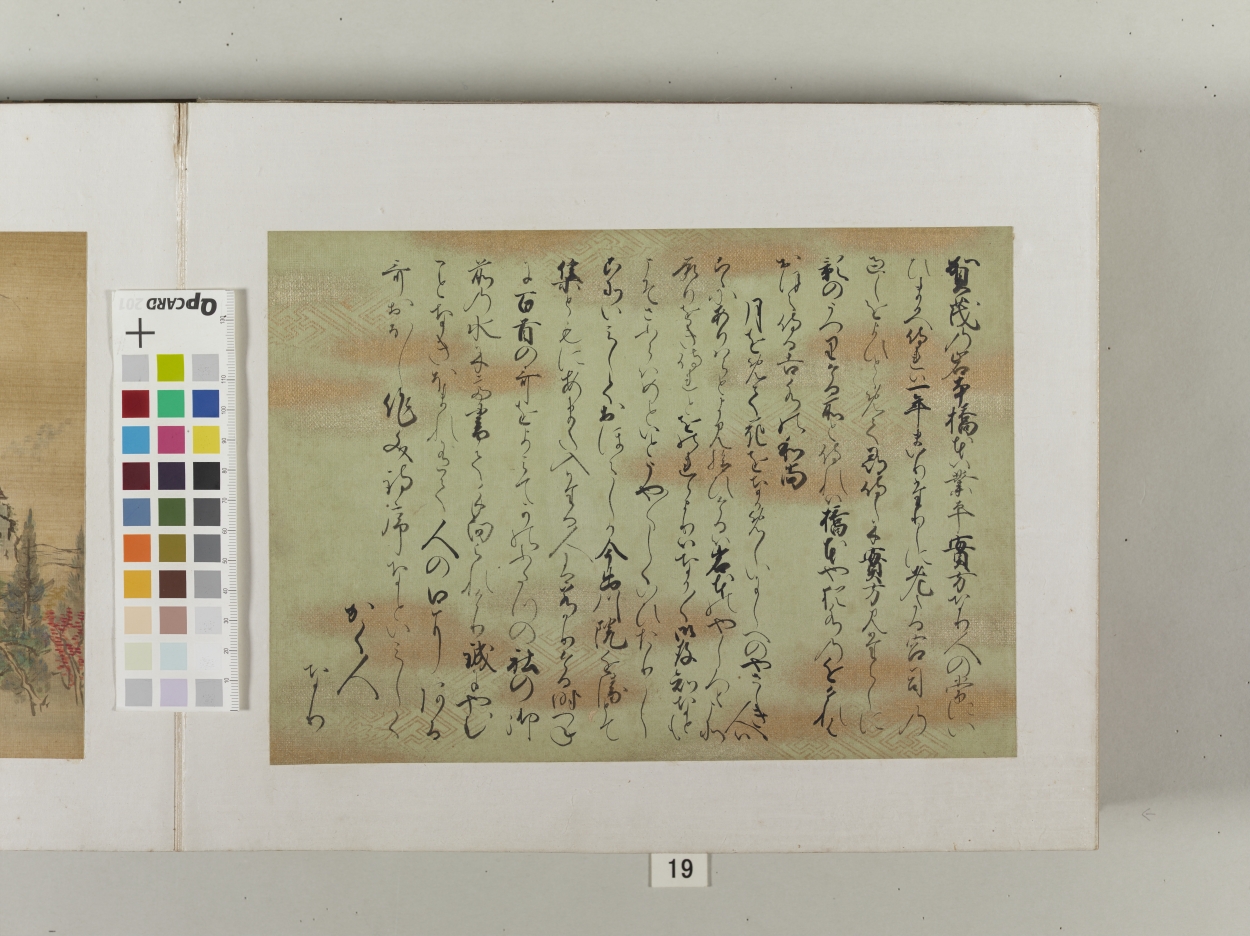 賀茂の岩本橋本は業平實方なり人の常にい
ひまかへ侍れは一年まいりたりしに老たる宮司の
過しをよひとゝめて尋侍しに實方はみたらしに
影のうつりける所と侍れは橋本や猶水のちかけれは
おほえ侍る吉水の和尚
月をめて花をなかめしいにしへのやさしき人は
こゝにありはらとよみ給ひけるは岩本のやしろと
をき侍れとをのれらよりはなか〱御存知なとも
こそさふらはめといとうや〱しくいひたりし
こそいみしくおほえしか今出川院近衛とて
集ともにあまた入たる人はわかかりける時つね
に百首の哥をよみてかのふたつの社の御
前の水にて書て手向られけり誠にやむ
ことなきほまれありて人の口にある
哥おほし作文詩序なといみしく
かく人
なり
19
QpCARD 201